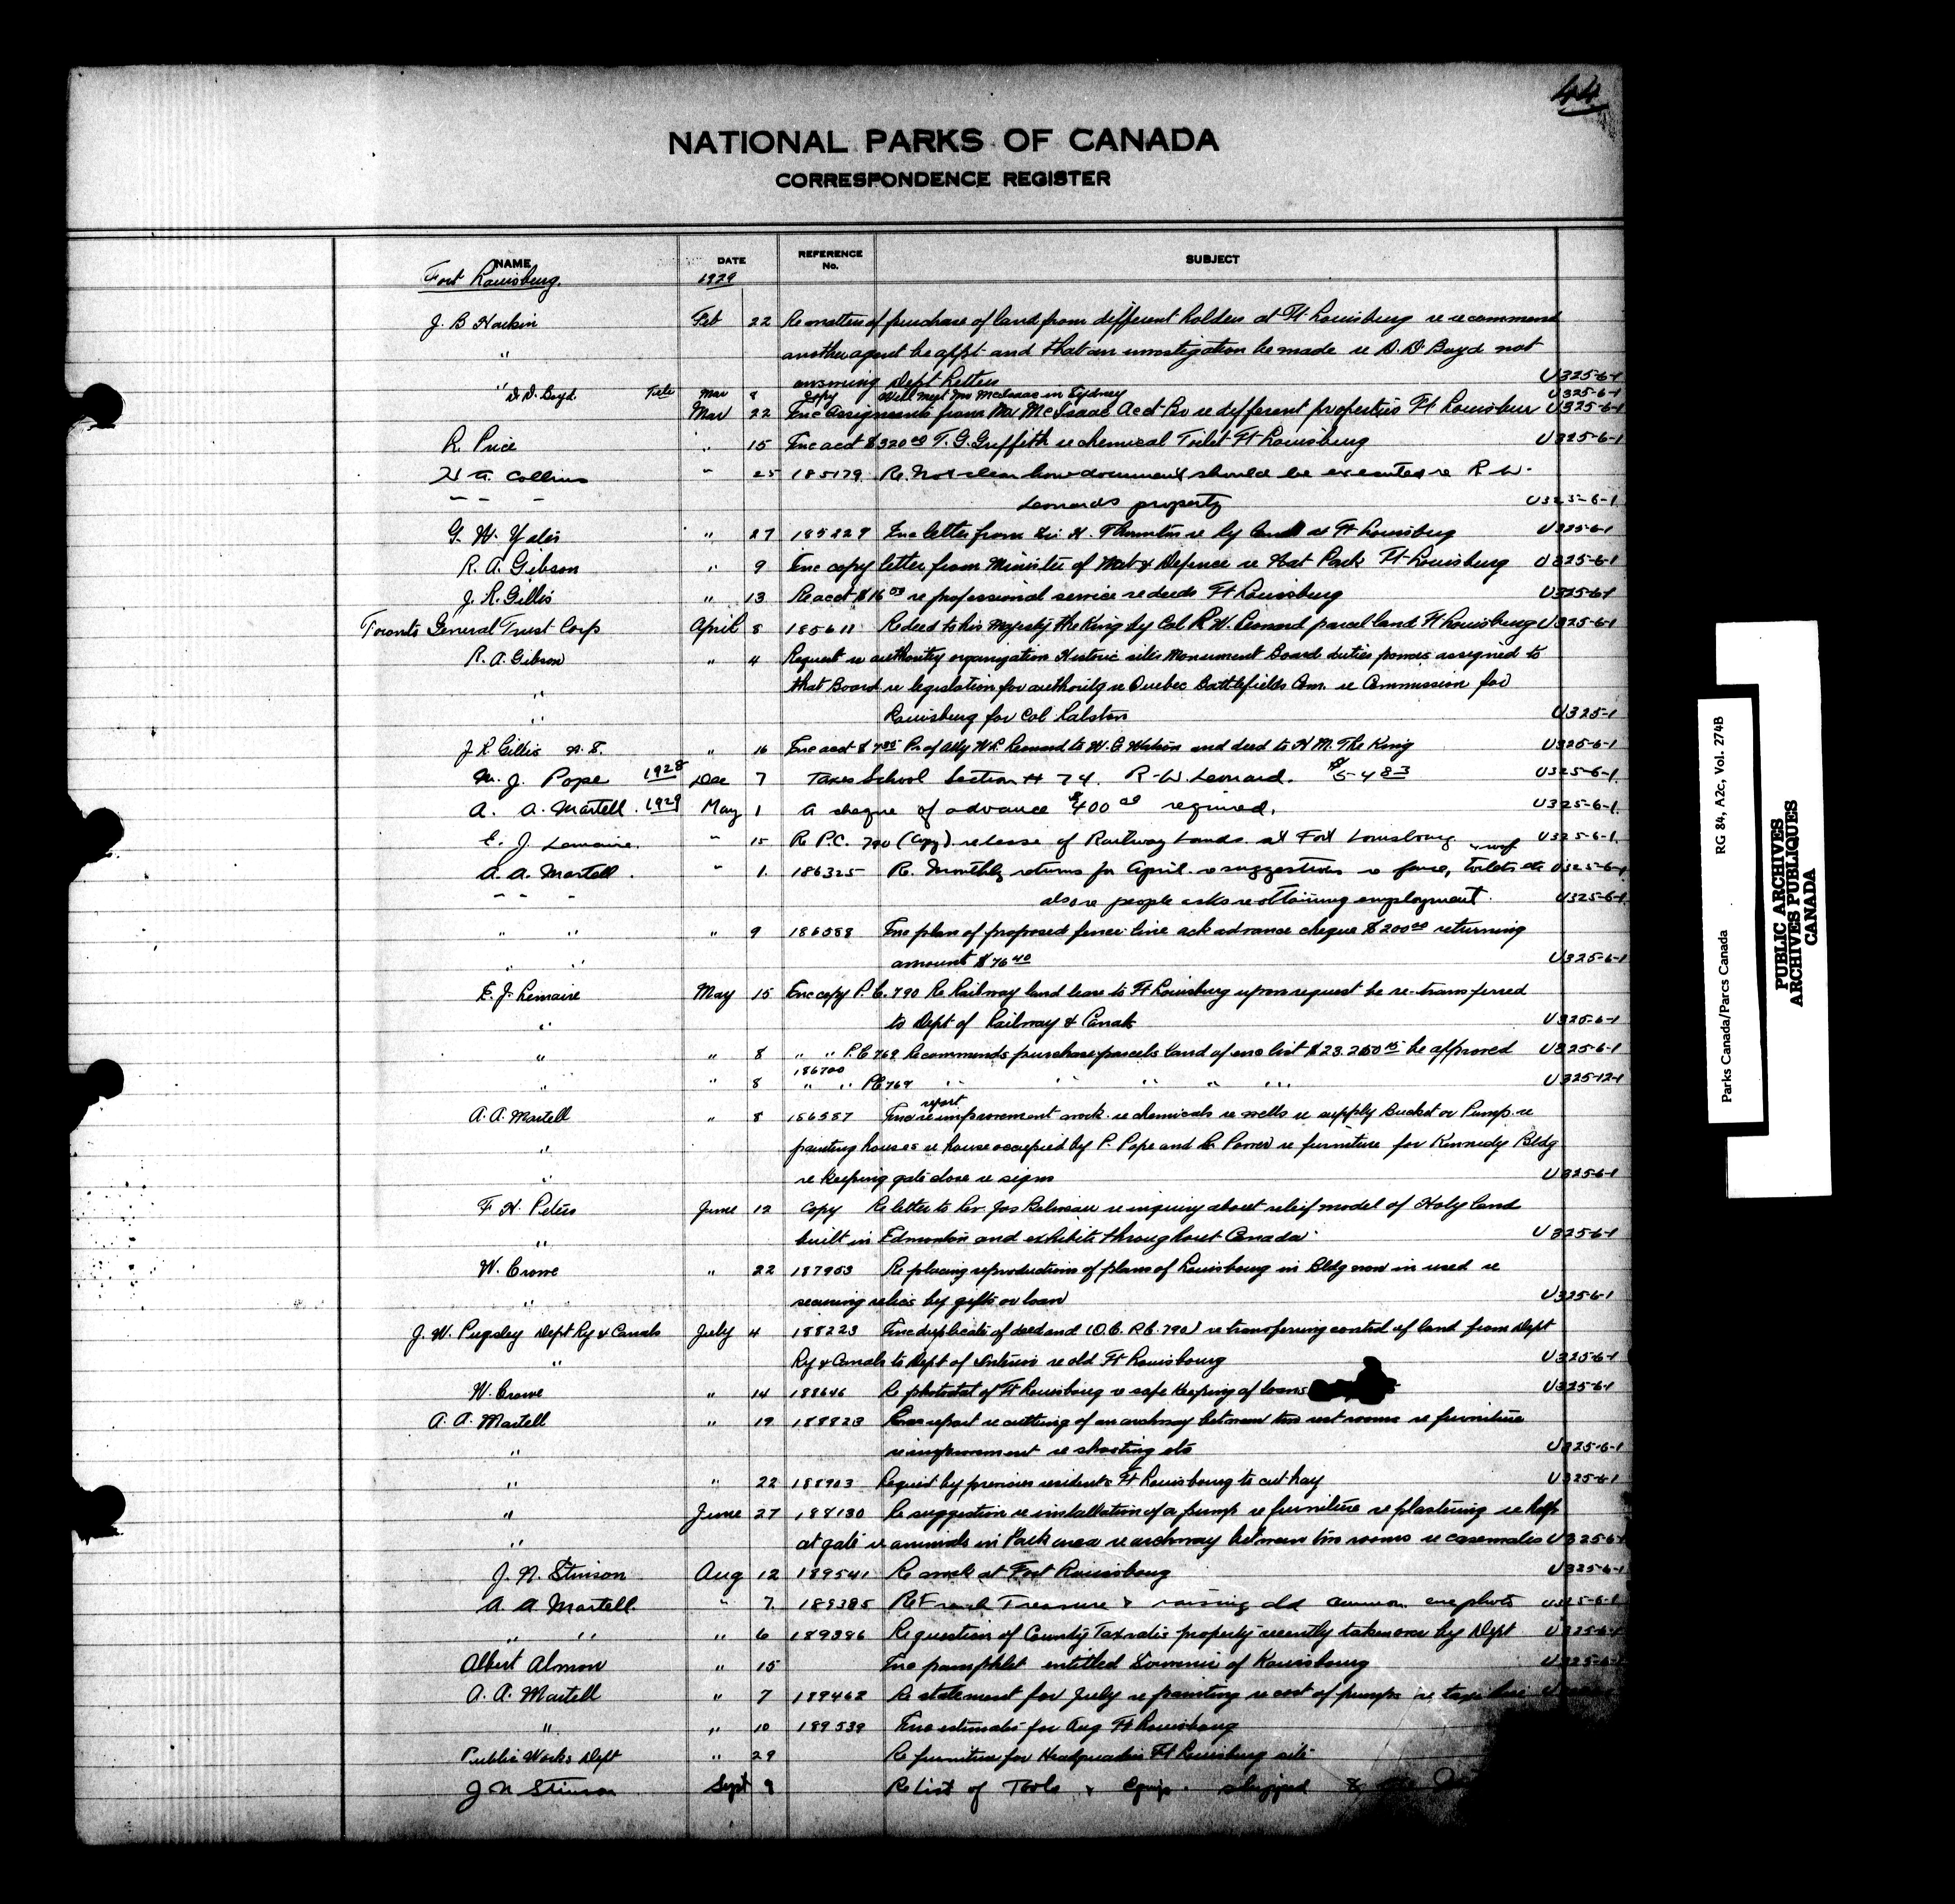 44
NATIONAL PARKS OF CANADA
CORRESPONDENCE REGISTER
NAME DATE REFERENCE No. SUBJECT
Fort Louisburg. 1929
J. B Harkin Feb 22 Re matter of purchase of land from different holders at Ft Louisburg re recommend
" another agent be appt and that an investigation be made re D. D. Boyd not
answering Dept letters U325-6-1
" D. D. Boyd Tele Mar 8 copy Will meet Mr McIsaac in Sydney U325-6-1
Mar 22 Enc assignments from Mr McIsaac Acct Br re different properties Ft Louisbur U325-6-1
R. Price " 15 Enc acct $320.00 T. G. Griffith re chemical Toilet Ft Louisburg U325-6-1
H. A. Collins " 25 185179 Re. Not clear how document should be executed re R. W.
" " " Leonards property U325-6-1
G. W. Yates " 27 185229 Enc letter from Sir H. Thornton re Ry land at Ft Louisburg U325-6-1
R. A. Gibson " 9 Enc copy letter from Minister of Nat Defence re Nat Park Ft Louisburg U325-6-1
J. R. Gillis " 13 Re acct $16.00 re professional service re deeds Ft Louisburg U325-6-1
Toronto General Trust Corp April 8 185611 Re deed to his Majesty the King by Col R. W. Leonard parcel land Ft Louisburg U325-6-1
R. A. Gibson " 4 Request re authority organization Historic sites Monument Board duties powers assigned to
" that Board re legislation for authority re Quebec Battlefields Com. re Commission for
" Louisburg for Col Ralston U325-1
J R Gillis N. S. " 16 Enc acct $7.35 Pr of Atty W. Leonard to W. G. Watson and deed to H M. The King U325-6-1
M. J. Pope 1928 Dec 7 Taxes School Section # 74. R. W. Leonard. $5-483 U325-6-1
A. A. Martell. 1929 May 1 A cheque of advance $400.00 required. U325-6-1.
E. J. Lemaire. " 15 Re P.C. 790 (copy) release of Railway Lands at Fort Louisbourg U325-6-1.
A. A. Martell. " 1. 186325 Re. Monthly returns for April. re suggestions re fence, toilets etc U325-6-1
" " " also re people asks re obtaining employment. U325-6-1
" " " 9 186588 Enc plan of proposed fence line ack advance cheque $200.00 returning
" " amount $76.40 U325-6-1
E. J. Lemaire May 15 Enc copy P.C. 790 Re Railway land lease to Ft Louisburg upon request be re-transferred
" to Dept of Railway & Canals U325-6-1
" " 8 " " P.C 769 Recommends purchase parcels land of enc list $23.250.15 be approved U325-6-1
" " 8 186700 " " PC 769 " " " " " U325-12-1
A. A. Martell " 8 186587 Enc report re improvement work re chemicals re wells re supply Bucket or Pump re
" painting houses re house occupied by P. Pope and R. Power re furniture for Kennedy Bldg
" re keeping gate close re signs U325-6-1
F. H. Peters June 12 copy Re letter to Rev. Jos Beliveau re inquiry about relief model of Holy land
" built in Edmonton and exhibits throughout Canada U325-6-1
W. Crowe " 22 187903 Re placing reproductions of plans of Louisbourg in Bldg now in used re
" securing relics by gifts or loan U325-6-1
J. W. Pugsley Dept Ry & Canals July 4 188223 Enc duplicate of deed and (O. C. P.C. 790) re transferring control of land from Dept
" Ry & Canals to Dept of Interior re old Ft Louisbourg U325-6-1
W. Crowe " 14 188646 Re photostat of Ft Louisburg re safe keeping of loans U325-6-1
A. A. Martell " 19 188823 Enc report re cutting of an archway between two rest rooms re furniture
" re improvement re shooting etc U325-6-1
" " 22 188903 Request by previous residents Ft Louisbourg to cut hay U325-6-1
" June 27 188130 Re suggestion re installation of a pump re furniture re plastering re help
" at gate re animals in Park area re archway between two rooms re casemates U325-6-1
J. N. Stinson Aug 12 189541 Re work at Fort Louisbourg U325-6-1
A. A Martell. " 7. 189385 Re French Treasure & raising old cannon enc photo U325-6-1
" " " 6 189386 Re question of County Tax rolls property recently taken over by Dept U325-6-1
Albert Almon " 15 Enc pamphlet entitled Souvenir of Louisbourg U325-6-1
A. A. Martell " 7 189462 Re statement for July re painting re cost of pumps re
" " 10 189539 Enc estimates for Aug Ft Louisbourg
Public Works Dept " 29 Re furniture for Headquarters Ft Louisburg site
J N Stinson Sept 9 Re List of Tools & Equip. shipped
Parks Canada/Parcs Canada RG 84, A2c, Vol. 274B
PUBLIC ARCHIVES
ARCHIVES PUBLIQUES
CANADA